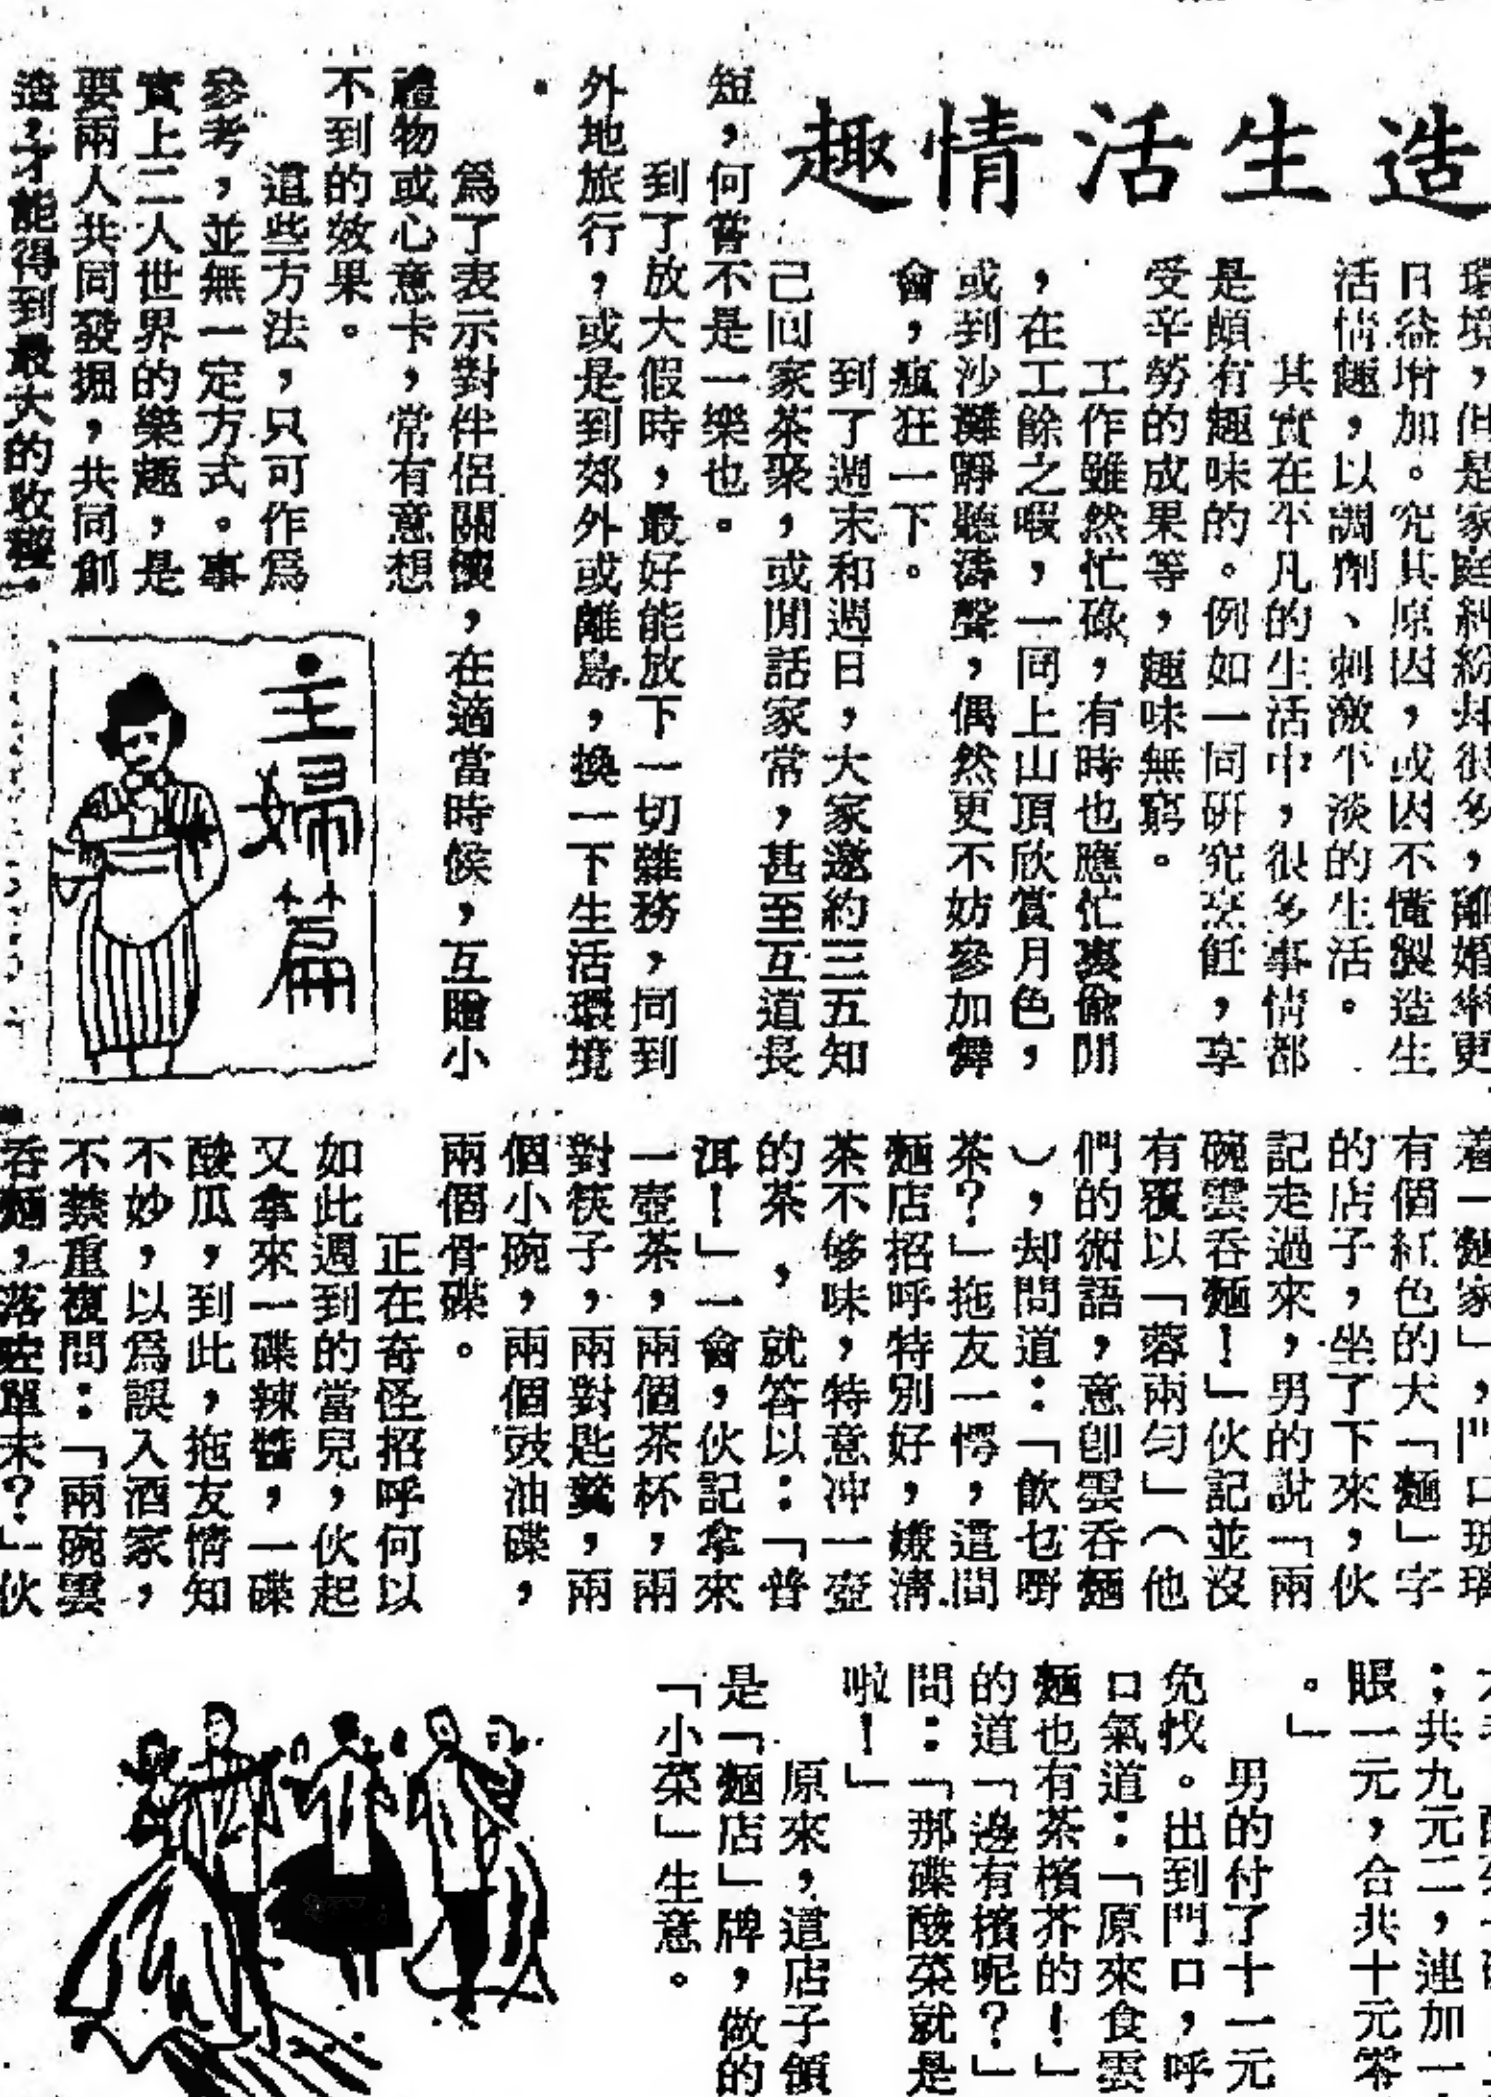 造生活情趣
環境，但是家庭糾紛却很多，離婚率更
日益增加。究其原因，或因不懂製造生
活情趣，以調劑、刺激平淡的生活。
其實在平凡的生活中，很多事情都
是頗有趣味的。例如一同研究烹飪，享
受辛勞的成果等，趣味無窮。
工作雖然忙碌，有時也應忙裏偸閒
，在工餘之暇，一同上山頂欣賞月色，
或到沙灘靜聽濤聲，偶然更不妨參加舞
會，瘋狂一下。
到了週末和週日，大家邀約三五知
己囘家茶聚，或閒話家常，甚至互道長
短，何嘗不是一樂也。
到了放大假時，最好能放下一切雜務，同到
外地旅行，或是到郊外或離島，換一下生活環境
。
爲了表示對伴侶關懷，在適當時候，互贈小
禮物或心意卡，常有意想
不到的效果。
這些方法，只可作爲
參考，並無一定方式。事
實上二人世界的樂趣，是
要兩人共同發掘，共同創
造，才能得到最大的收穫。
主婦篇
着一麵家」，門口玻璃
有個紅色的大「麵」字
的店子，坐了下來，伙
記走過來，男的說「兩
碗雲吞麵！」伙記並沒
有覆以「蓉兩勻」（他
們的術語，意卽雲吞麵
），却問道：「飮乜嘢
茶？」拖友一愕，這間
麵店招呼特別好，嫌淸
茶不够味，特意冲一壺
的茶，就答以：「普
洱！」一會，伙記拿來
一壺茶，兩個茶杯，兩
對筷子，兩對匙羹，兩
個小碗，兩個豉油碟，
兩個骨碟。
正在奇怪招呼何以
如此週到的當兒，伙起
又拿來一碟辣醬，一碟
酸瓜，到此，拖友情知
不妙，以爲誤入酒家，
不禁重複問：「兩碗雲
吞麵，落咗單未？」伙
；共九元二，連加一
眼一元，合共十元零
。」
男的付了十一元
免找。出到門口，呼
口氣道：「原來食雲
麵也有茶檳芥的！」
的道「邊有檳呢？」
問：「那碟酸菜就是
啦！」
原來，這店子領
是「麵店」牌，做的
「小菜」生意。